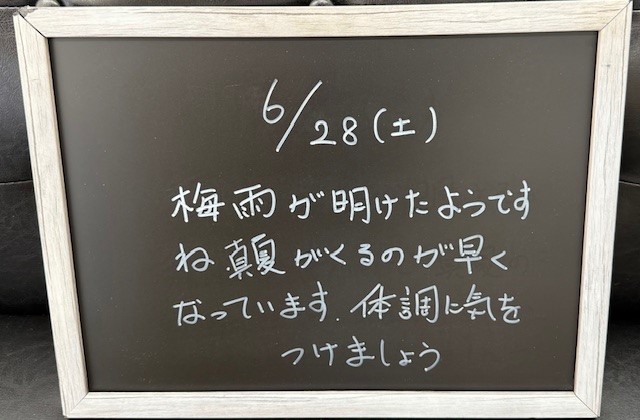 6/28(土)
梅雨が明けたようです
ね真夏がくるのが早く
なっています.体調に気を
つけましょう